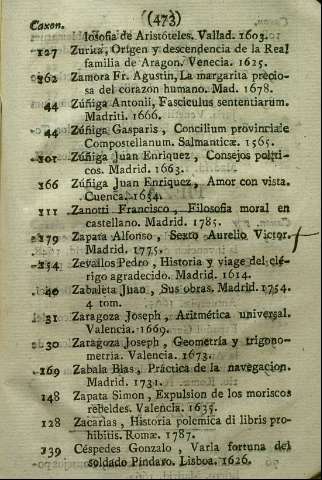 Caxon. (473)
losofia de Aristóteles. Vallad. 1603.
127 Zurita, Orígen y descendencia de la Real
familia de Aragon. Venecia. 1625.
262 Zamora Fr. Agustin, La margarita precio-
sa del corazon humano. Mad. 1678.
44 Zúñiga Antonii, Fasciculus sententiarum.
Madriti. 1666.
44 Zúñiga Gasparis, Concilium provinciale
Compostellanum. Salmanticæ. 1565.
201 Zúñiga Juan Enriquez, Consejos políti-
cos. Madrid. 1663.
166 Zúñiga Juan Enriquez, Amor con vista.
Cuenca. 1634.
111 Zanotti Francisco, Filosofia moral en
castellano. Madrid. 1785.
279 Zapata Alfonso, Sexto Aurelio Victor.
Madrid. 1775.
254 Zevallos Pedro, Historia y viage del clé-
rigo agradecido. Madrid. 1614.
40 Zabaleta Juan, Sus obras. Madrid. 1754.
4 tom.
31 Zaragoza Joseph, Aritmética universal.
Valencia. 1669.
230 Zaragoza Joseph, Geometría y trigono-
metria. Valencia. 1673.
169 Zabala Blas, Práctica de la navegacion.
Madrid. 1731.
148 Zapata Simon, Expulsion de los moriscos
rebeldes. Valencia. 1635.
128 Zacarías, Historia polemica di libris pro-
hibitis. Romæ. 1787.
239 Céspedes Gonzalo, Varia fortuna del
soldado Píndaro. Lisboa. 1626.